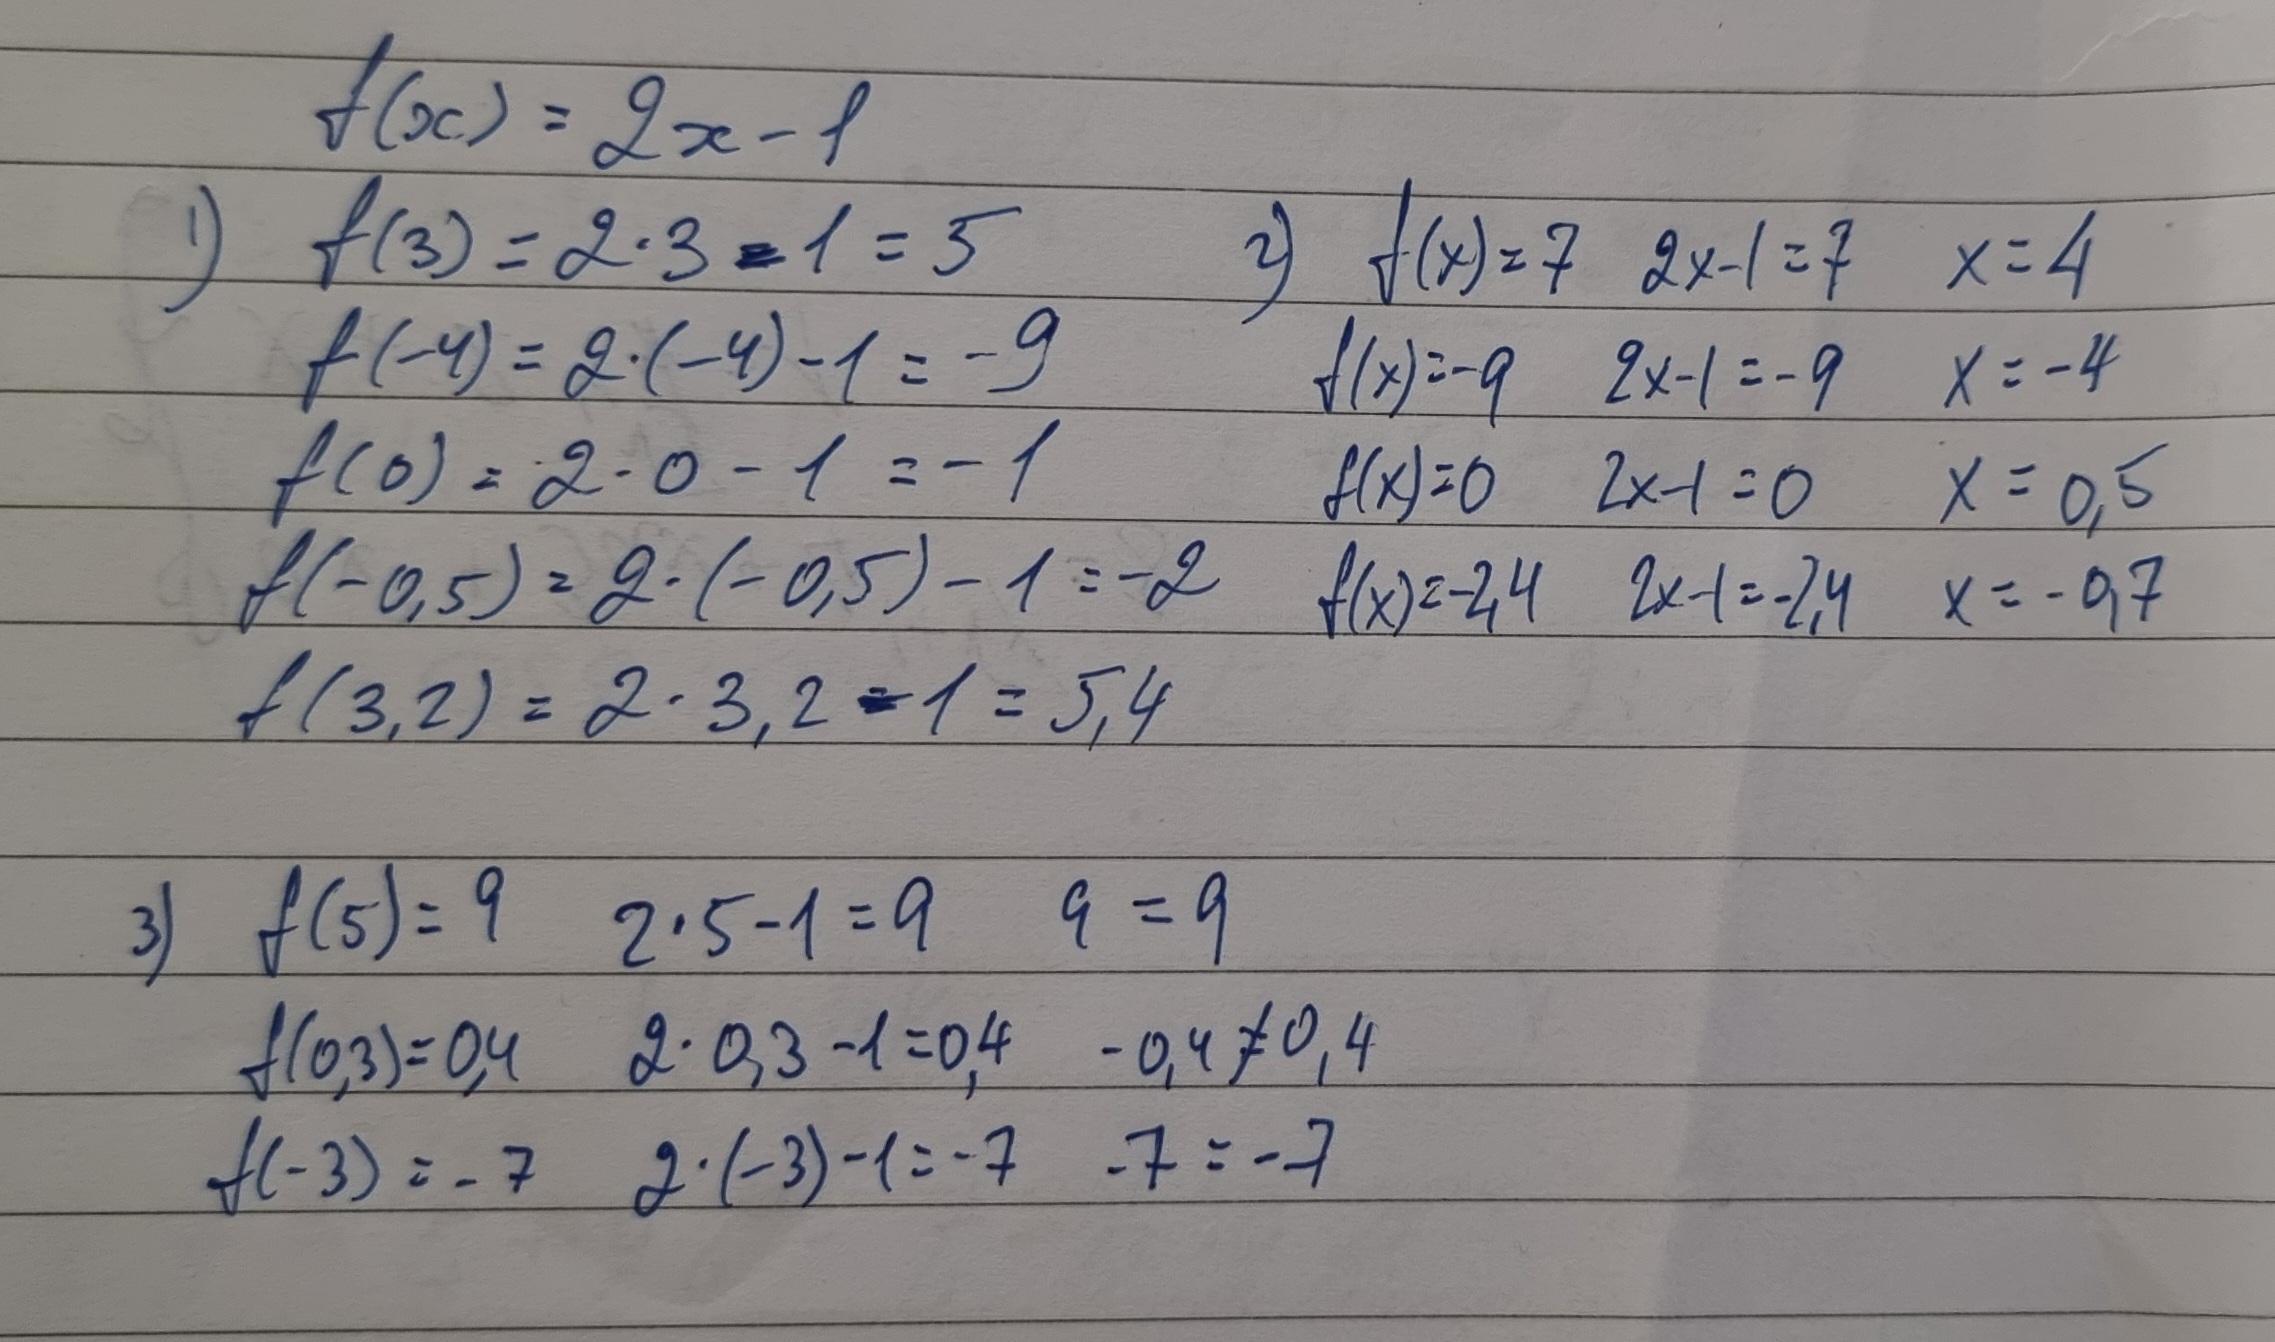 f(x) = 2x - 1
1) f(3) = 2·3 - 1 = 5
f(-4) = 2·(-4) - 1 = -9
f(0) = 2·0 - 1 = -1
f(-0,5) = 2·(-0,5) - 1 = -2
f(3,2) = 2·3,2 - 1 = 5,4
2) f(x) = 7 2x-1 = 7 x = 4
f(x) = -9 2x-1 = -9 x = -4
f(x) = 0 2x-1 = 0 x = 0,5
f(x) = -2,4 2x-1 = -2,4 x = -0,7
3) f(5) = 9 2·5-1 = 9 9 = 9
f(0,3) = 0,4 2·0,3-1 = 0,4 -0,4 ≠ 0,4
f(-3) = -7 2·(-3)-1 = -7 -7 = -7